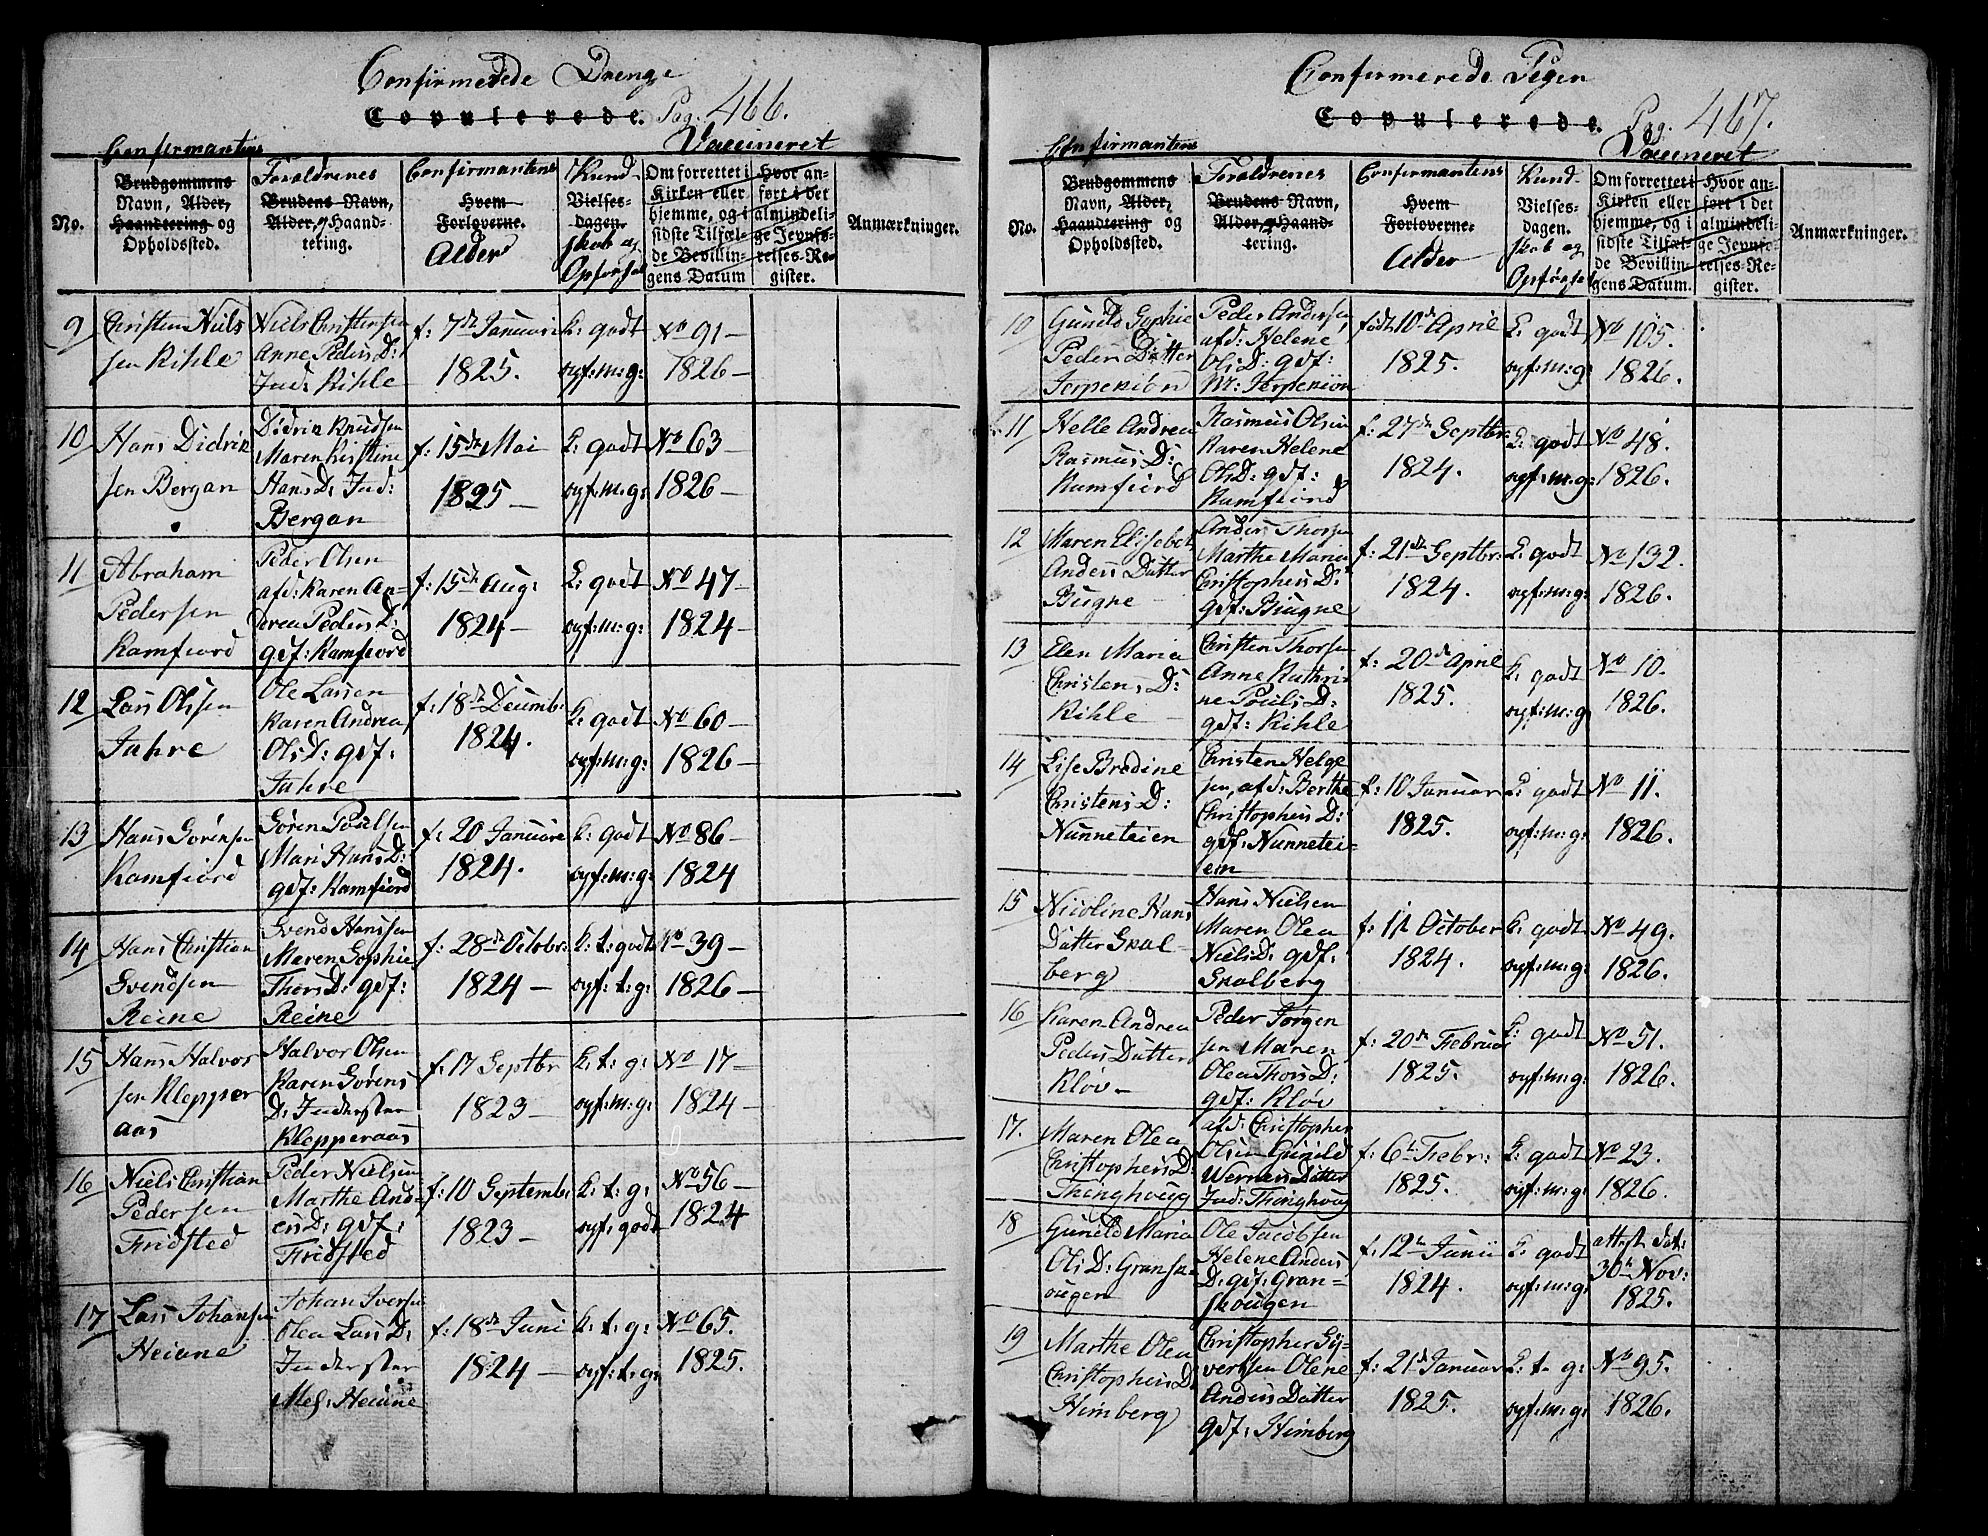 Confirmerede Drenge
Copulerede. Pag. 466.
Confirmantens
Vaccineret
No.
Brudgommens
Navn, Alder,
Haandtering og
Opholdssted.
Foraldrenes
Brudens Navn,
Alder, og Haand-
tering.
Confirmantens
Hvem
Forloverne.
Alder
Kund-
Vielses-
dagen.
skab og
Opførsel
Om forrettet i
Kirken eller
hjemme, og i
sidste Tilfæl-
de Bevillin-
gens Datum
Hvor an-
ført i det
almindeli-
ge Jevnfø-
relses-Re-
gister.
Anmærkninger.
9
Christen Niels
sen Kihle
Niels Christensen
Anne Peders D:
Ind: Kihle
f: 7de Januari
1825.
K: godt
opf: m: g:
No 91 –
1826 –
10
Hans Didrik
sen Bergan
Didrik Knudsen
Maren Kirstine
Hans D: Ind:
Bergan
f: 15de Mai
1825 –
K: godt
opf: m: g:
No 63
1826 –
11
Abraham
Pedersen
Kamfiord
Peder Olsen
afd: Karen An-
drea Peders D:
gdf: Kamfiord
f: 15de Aug:
1824 –
K: godt
opf: m: g:
No 47 –
1824 –
12
Lars Olsen
Jahre
Ole Larsen
Karen Andrea
Ols D: gdf:
Jahre
f: 18de Decemb:
1824.
K: godt
opf: m: g:
No 60 –
1826 –
13
Hans Sørensen
Kamfiord
Søren Poulsen
Mari Hans D:
gdf: Kamfiord
f: 20 Januari
1824.
K: godt
opf: m: g:
No 86 –
1824
14
Hans Christian
Svendsen
Reine
Svend Hanssen
Maren Sophie
Thors D: gdf:
Reine
f: 28de Octobr:
1824 –
K: t: godt
opf: t: g:
No 39 –
1826 –
15
Hans Halvor
sen Klepper
aas
Halvor Olsen
Karen Sørens
D: Inderster
Klepperaas
f: 17 Septbr
1823 –
K: t: g:
opf: m: g:
No 17 –
1824 –
16
Niels Christian
Pedersen
Fridsted
Peder Nielsen
Marthe And-
ers D: gdf:
Fridsted
f: 10 Septembr
1823 –
K: t: g:
opf: godt
No 56 –
1824
17
Lars Johansen
Heiane
Johan Iversen
Olea Lars D:
Inderster
Mel: Heiane
f: 18de Juni
1824 –
K: t: g:
opf: t: g:
No 65.
1825.
Confirmerede Piger
Copulerede. Pag. 467.
Confirmantens
Vaccineret
No.
Brudgommens
Navn, Alder,
Haandtering og
Opholdssted.
Foraldrenes
Brudens Navn,
Alder, og Haand-
tering.
Confirmantens
Hvem
Forloverne.
Alder
Kund-
Vielses-
dagen.
skab og
Opførsel
Om forrettet i
Kirken eller
hjemme, og i
sidste Tilfæl-
de Bevillin-
gens Datum.
Hvor an-
ført i det
almindeli-
ge Jevnfø-
relses-Re-
gister.
Anmærkninger.
10
Gunild Sophie
Peders Datter
Jerpekiøn
Peder Andersen,
afd: Helene
Ols D: gdf:
M: Jerpekiøn
født 10de April
1825.
K: godt
opf: m: g:
No 105.
1826.
11
Helle Andrea
Rasmus D:
Kamfiord
Rasmus Olsen
Karen Helene
Ols D: gdf:
Kamfiord
f: 27de Septbr
1824.
K: godt
opf: m: g:
No 48.
1826.
12
Maren Elisebet
Anders Datter
Bugne
Anders Thorsen
Marthe Maria
Christophers D:
gdf: Bugne
f: 21de Septbr:
1824.
K: godt
opf: m: g:
No 132.
1826.
13
Elen Maria
Christens D:
Kihle
Christen Thorsen
Anne Kathri
ne Pouls D:
gdf: Kihle
f: 20de April
1825.
K: godt
opf: m: g:
No 10.
1826.
14
Lise Bredine
Christens D:
Nunneteien
Christen Helge
sen, afd: Berthe
Christophers D:
gdf: Nunnetei-
em
f: 10 Januar
1825.
K: godt
opf: m: g:
No 11.
1826.
15
Nicoline Hans
Datter Skal
berg
Hans Nielsen
Maren Olea
Niels D: gdf:
Skalberg
f: 12 October
1824.
K: godt
opf: m: g:
No 49.
1826.
16
Karen Andrea
Peders Datter
Kløv –
Peder Jørgen
sen Maren
Olea Thors D:
gdf: Kløv
f: 20de Februar
1825.
K: godt
opf: m: g:
No 51.
1826.
17.
Maren Olea
Christophers D:
Thinghoug
afd: Christopher
Olsen Gunild
Werners Datter
Ind: Thinghoug
f: 6te Febr:
1825.
K: godt
opf: m: g:
No 23.
1826.
18
Gunild Maria
Ols D: Gransk
ougen
Ole Jacobsen
Helene Anders
D: gdf: Gran-
skougen
f: 12te Junii
1824.
K: godt
opf: m: g:
attest Dat:
30te Nov:
1825.
19
Marthe Olea
Christophers D:
Himberg
Christopher Sy-
vertsen Olene
Anders Datter
gdf: Himberg
f: 21de Januar
1825.
K: t. g:
opf: m: g:
No 95.
1826.